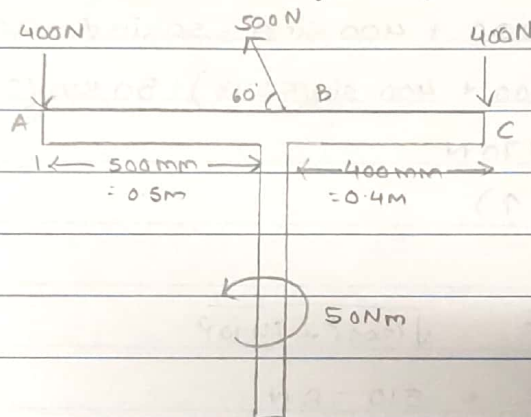 400N 500N 400N
60° B
A C
500mm 400mm
= 0.5m =0.4M
50Nm